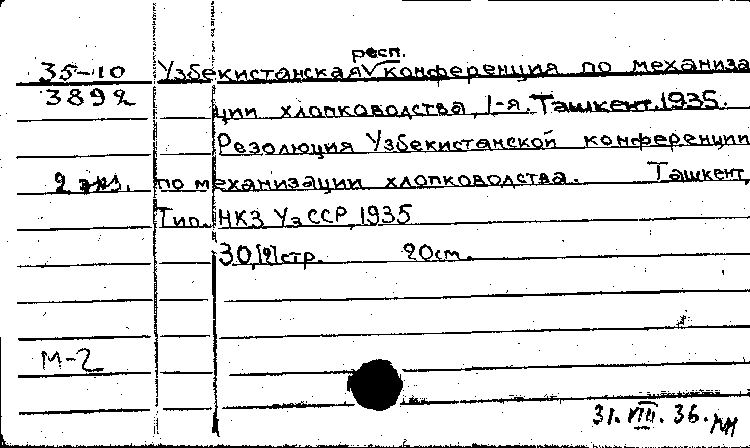 респ.
35-10 Узбекистанская конференция по механиза
3892 ции хлопководства, 1-я. Ташкент. 1935.
Резолюция Узбекистанской конференции
2 экз. по механизации хлопководства. Ташкент,
Тип. НКЗ УзССР, 1935
30,[2]стр. 20см.
М-2
31.VIII.36.